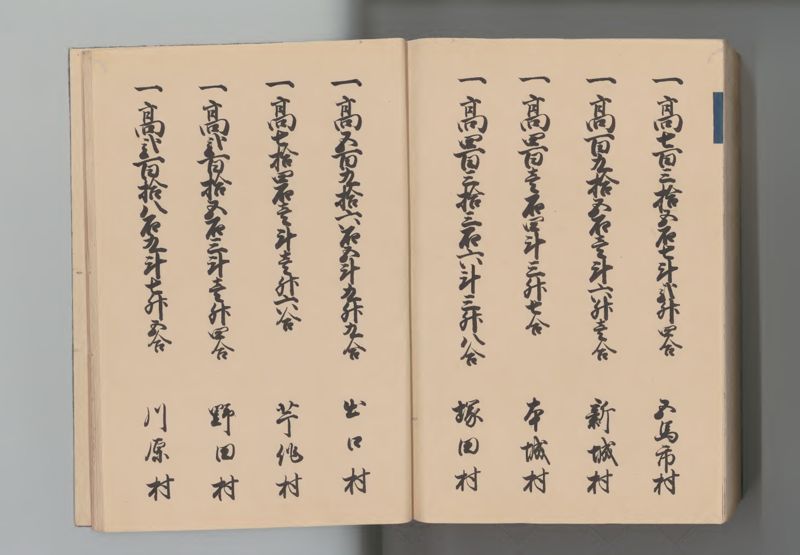 一高七百三拾五石七斗弐升四合 五馬市村
一高百九拾五石壱斗六升壱合 新城村
一高四百壱石四斗三升七合 本城村
一高四百六拾三石六斗三升八合 塚田村
一高五百九拾六石五斗九升九合 出口村
一高七拾四石壱斗壱升六合 芋作村
一高弐百拾五石三斗壱升四合 野田村
一高弐百拾八石九斗七升五合 川原村